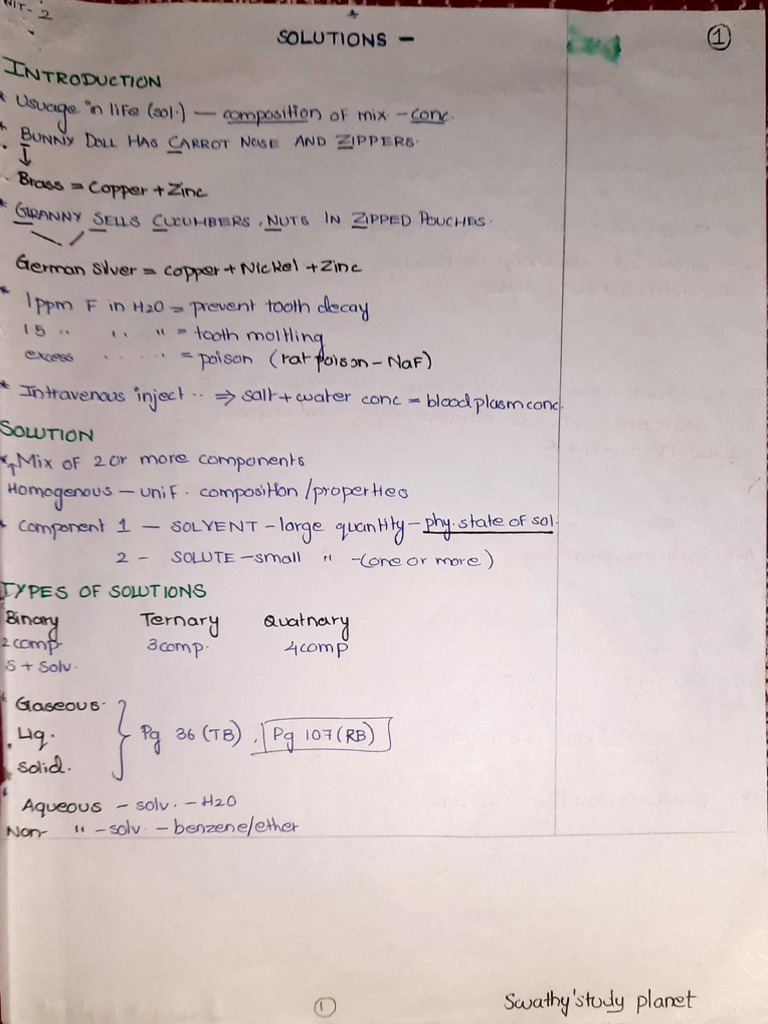 UNIT- 2
SOLUTIONS -
1
INTRODUCTION
* Usuage in life (sol.) — composition of mix - conc.
* BUNNY DOLL HAS CARROT NOSE AND ZIPPERS.
↓
Brass = Copper + Zinc
* GRANNY SELLS CUCUMBERS, NUTS IN ZIPPED POUCHES.
German Silver = copper + Nickel + Zinc
* 1ppm F in H2O = prevent tooth decay
15 " " " = tooth moltling
excess " " = poison (rat poison - NaF)
* Intravenous inject ·· ⇒ salt + water conc = blood plasm conc.
SOLUTION
* Mix of 2 or more components
Homogenous — unif. composition / properties
* Component 1 — SOLVENT - large quantity - phy. state of sol.
2 - SOLUTE - small " - (one or more)
TYPES OF SOLUTIONS
Binary Ternary Quatnary
2 comp. 3 comp. 4 comp
S + Solv.
* Gaseous.
Liq. } Pg 36 (TB), Pg 107 (RB)
Solid.
* Aqueous - solv. - H2O
Non- " - solv. - benzene/ether
1
Swathy'study planet